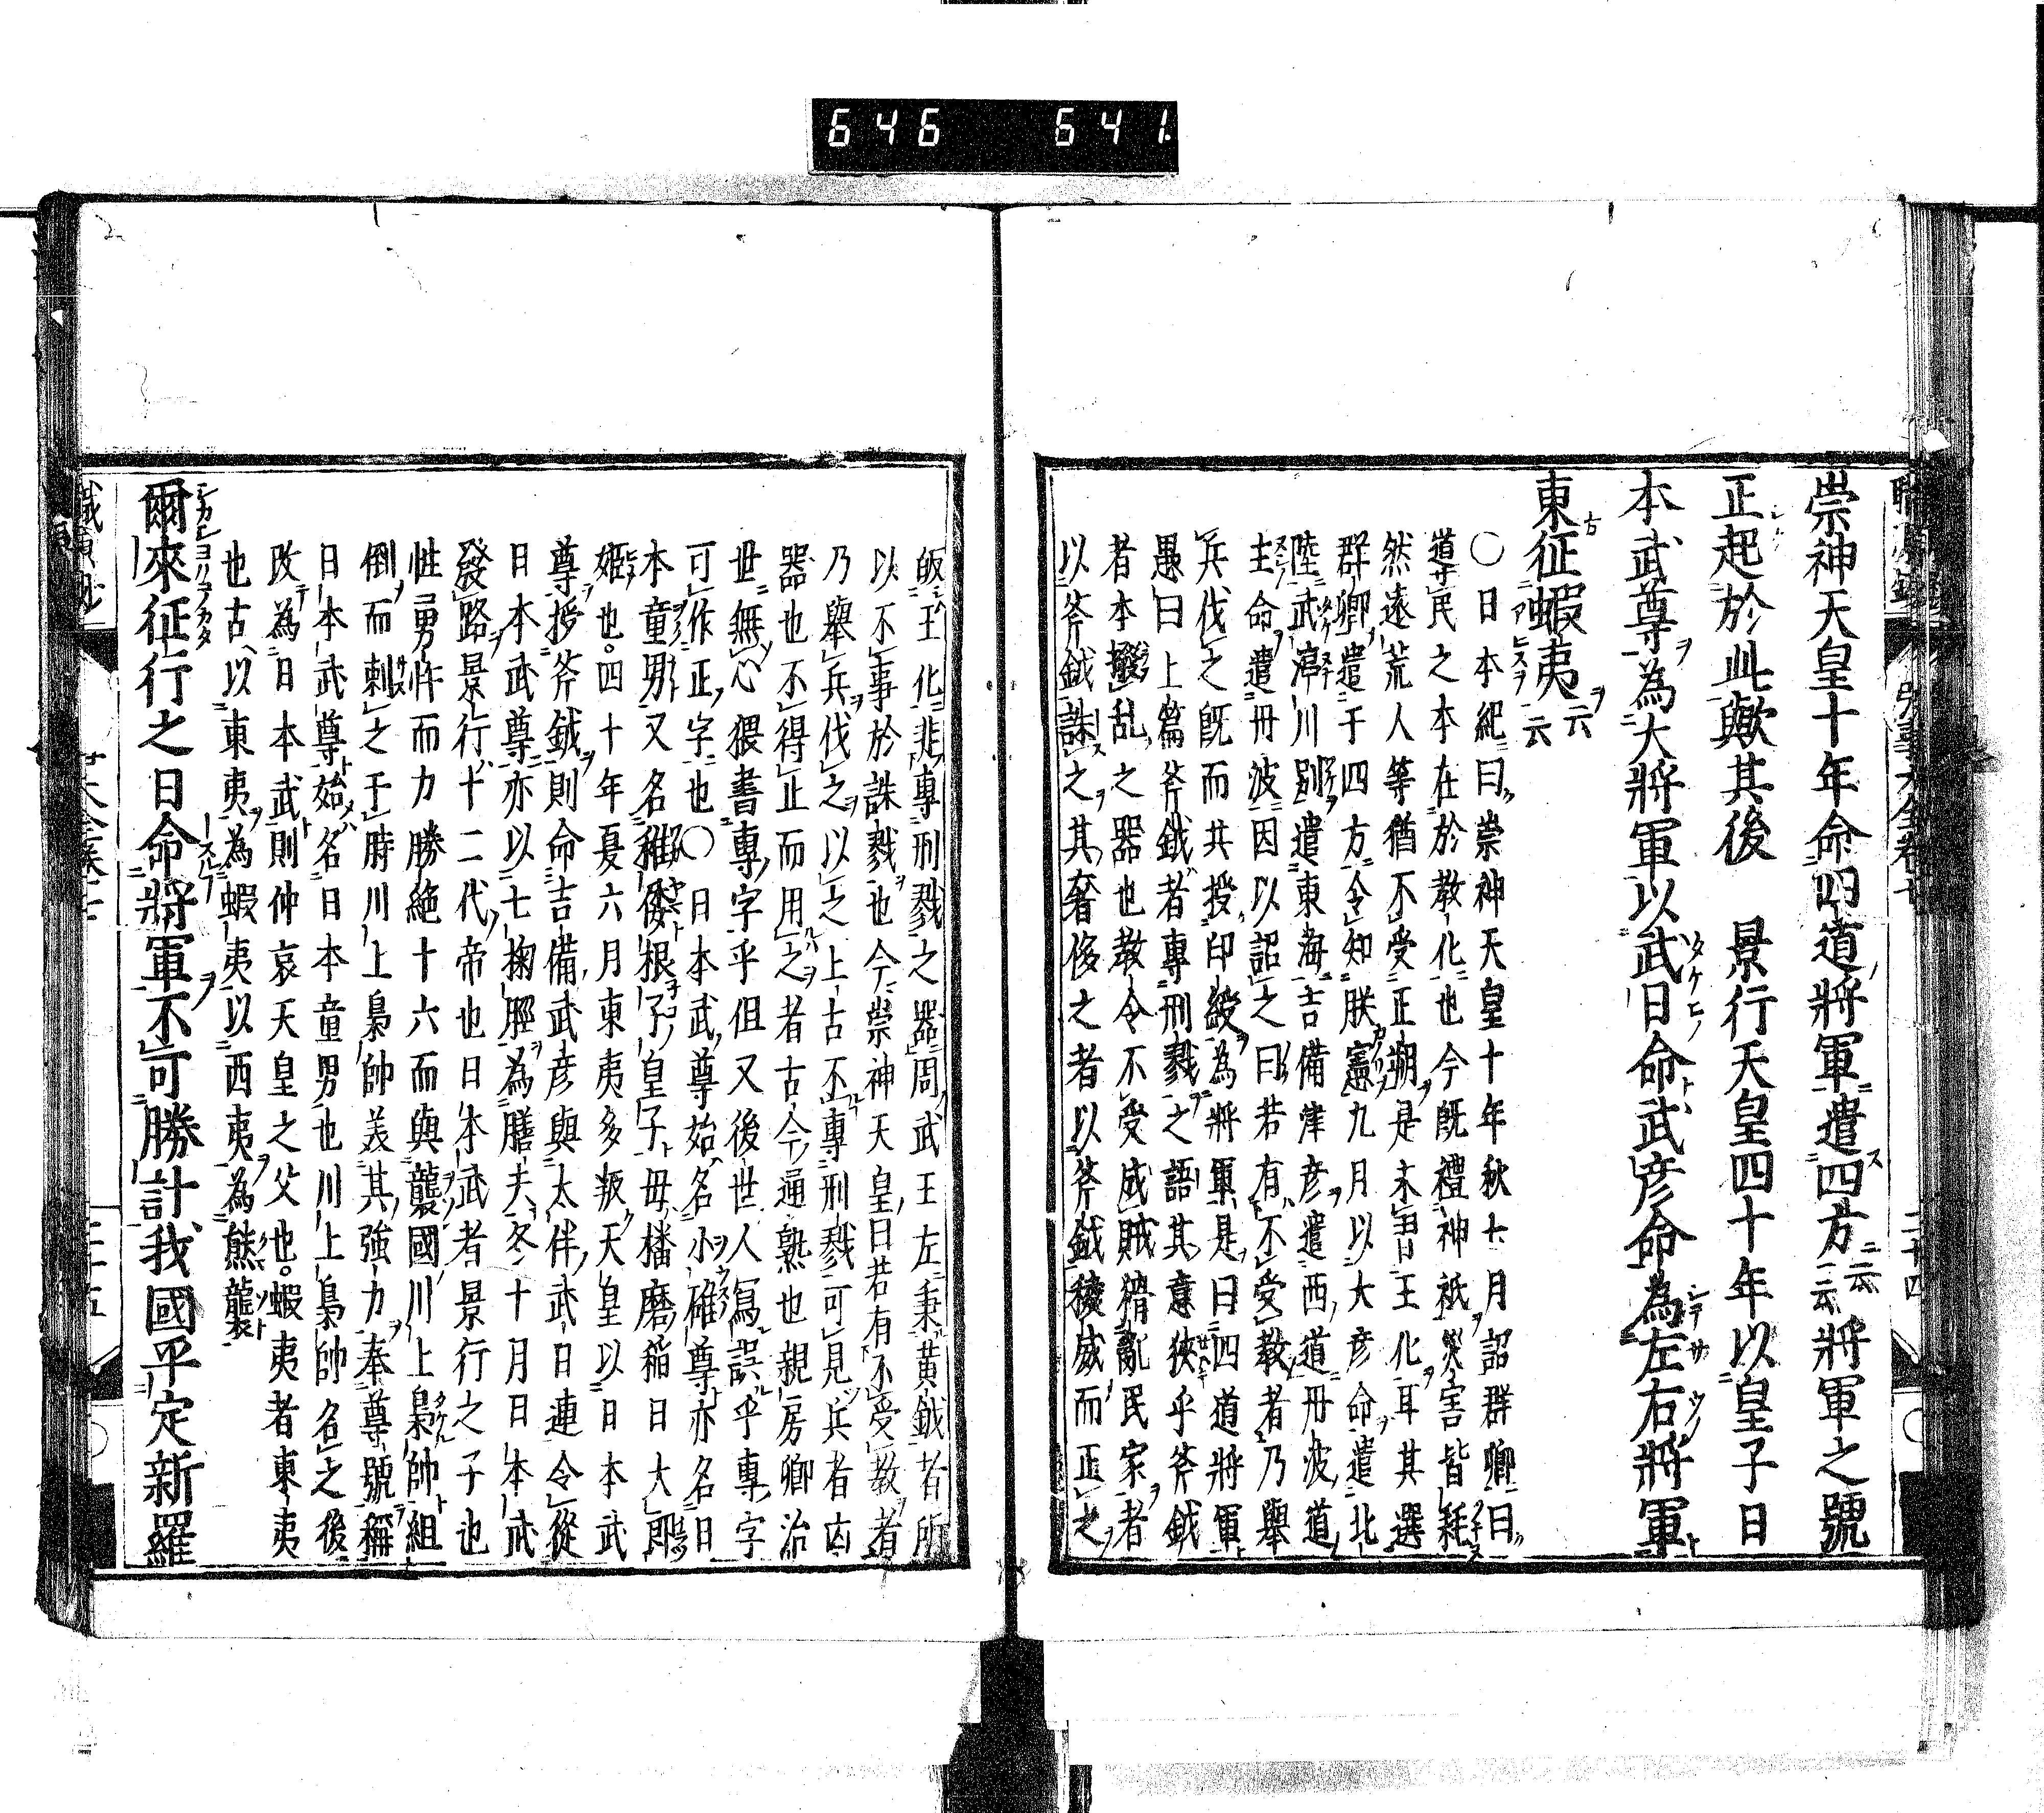 646 641
崇神天皇十年命四道將軍遣四方云云將軍之號
正起於此歟其後 景行天皇四十年以皇子日
本武尊為大將軍以武日命武彦命為左右將軍
東征蝦夷云云
○日本紀曰崇神天皇十年秋七月詔群卿曰
導民之本在於教化也今既禮神祇災害皆耗
然遠荒人等猶不受正朔是未習王化耳其選
群卿遣于四方令知朕憲九月以大彦命遣北
陸武渟川別遣東海吉備津彦遣西道丹波道
主命遣丹波因以詔之曰若有不受教者乃舉
兵伐之既而共授印綬為將軍是曰四道將軍
愚曰上篇斧鉞者專刑戮之語其意狹乎斧鉞
者本撥乱之器也教令不受成賊猾亂民家者
以斧鉞誅之其奢侈之者以斧鉞稜威而正之
皈王化非專刑戮之器周武王左秉黃鉞者所
以不事於誅戮也今崇神天皇曰若有不受教者
乃舉兵伐之以之上古不專刑戮可見兵者凶
器也不得止而用之者古今通熟也親房卿治
世無心猥書專字乎但又後世人寫誤乎專字
可作正字也○日本武尊始名小碓尊亦名日
本童男又名稚倭根子皇子母播磨稲日大郎
姫也。四十年夏六月東夷多叛天皇以日本武
尊授斧鉞則命吉備武彦與大伴武日連令從
日本武尊亦以七掬脛為膳夫冬十月日本武
發路景行十二代帝也日本武者景行之子也
性勇悍而力勝絶十六而與襲國川上梟帥組
倒而刺之于時川上梟帥羨其強力奉尊號稱
日本武尊始名日本童男也川上梟帥名之後
改為日本武則仲哀天皇之父也。蝦夷者東夷
也古以東夷為蝦夷以西夷為熊襲
爾來征行之日命將軍不可勝計我國平定新羅